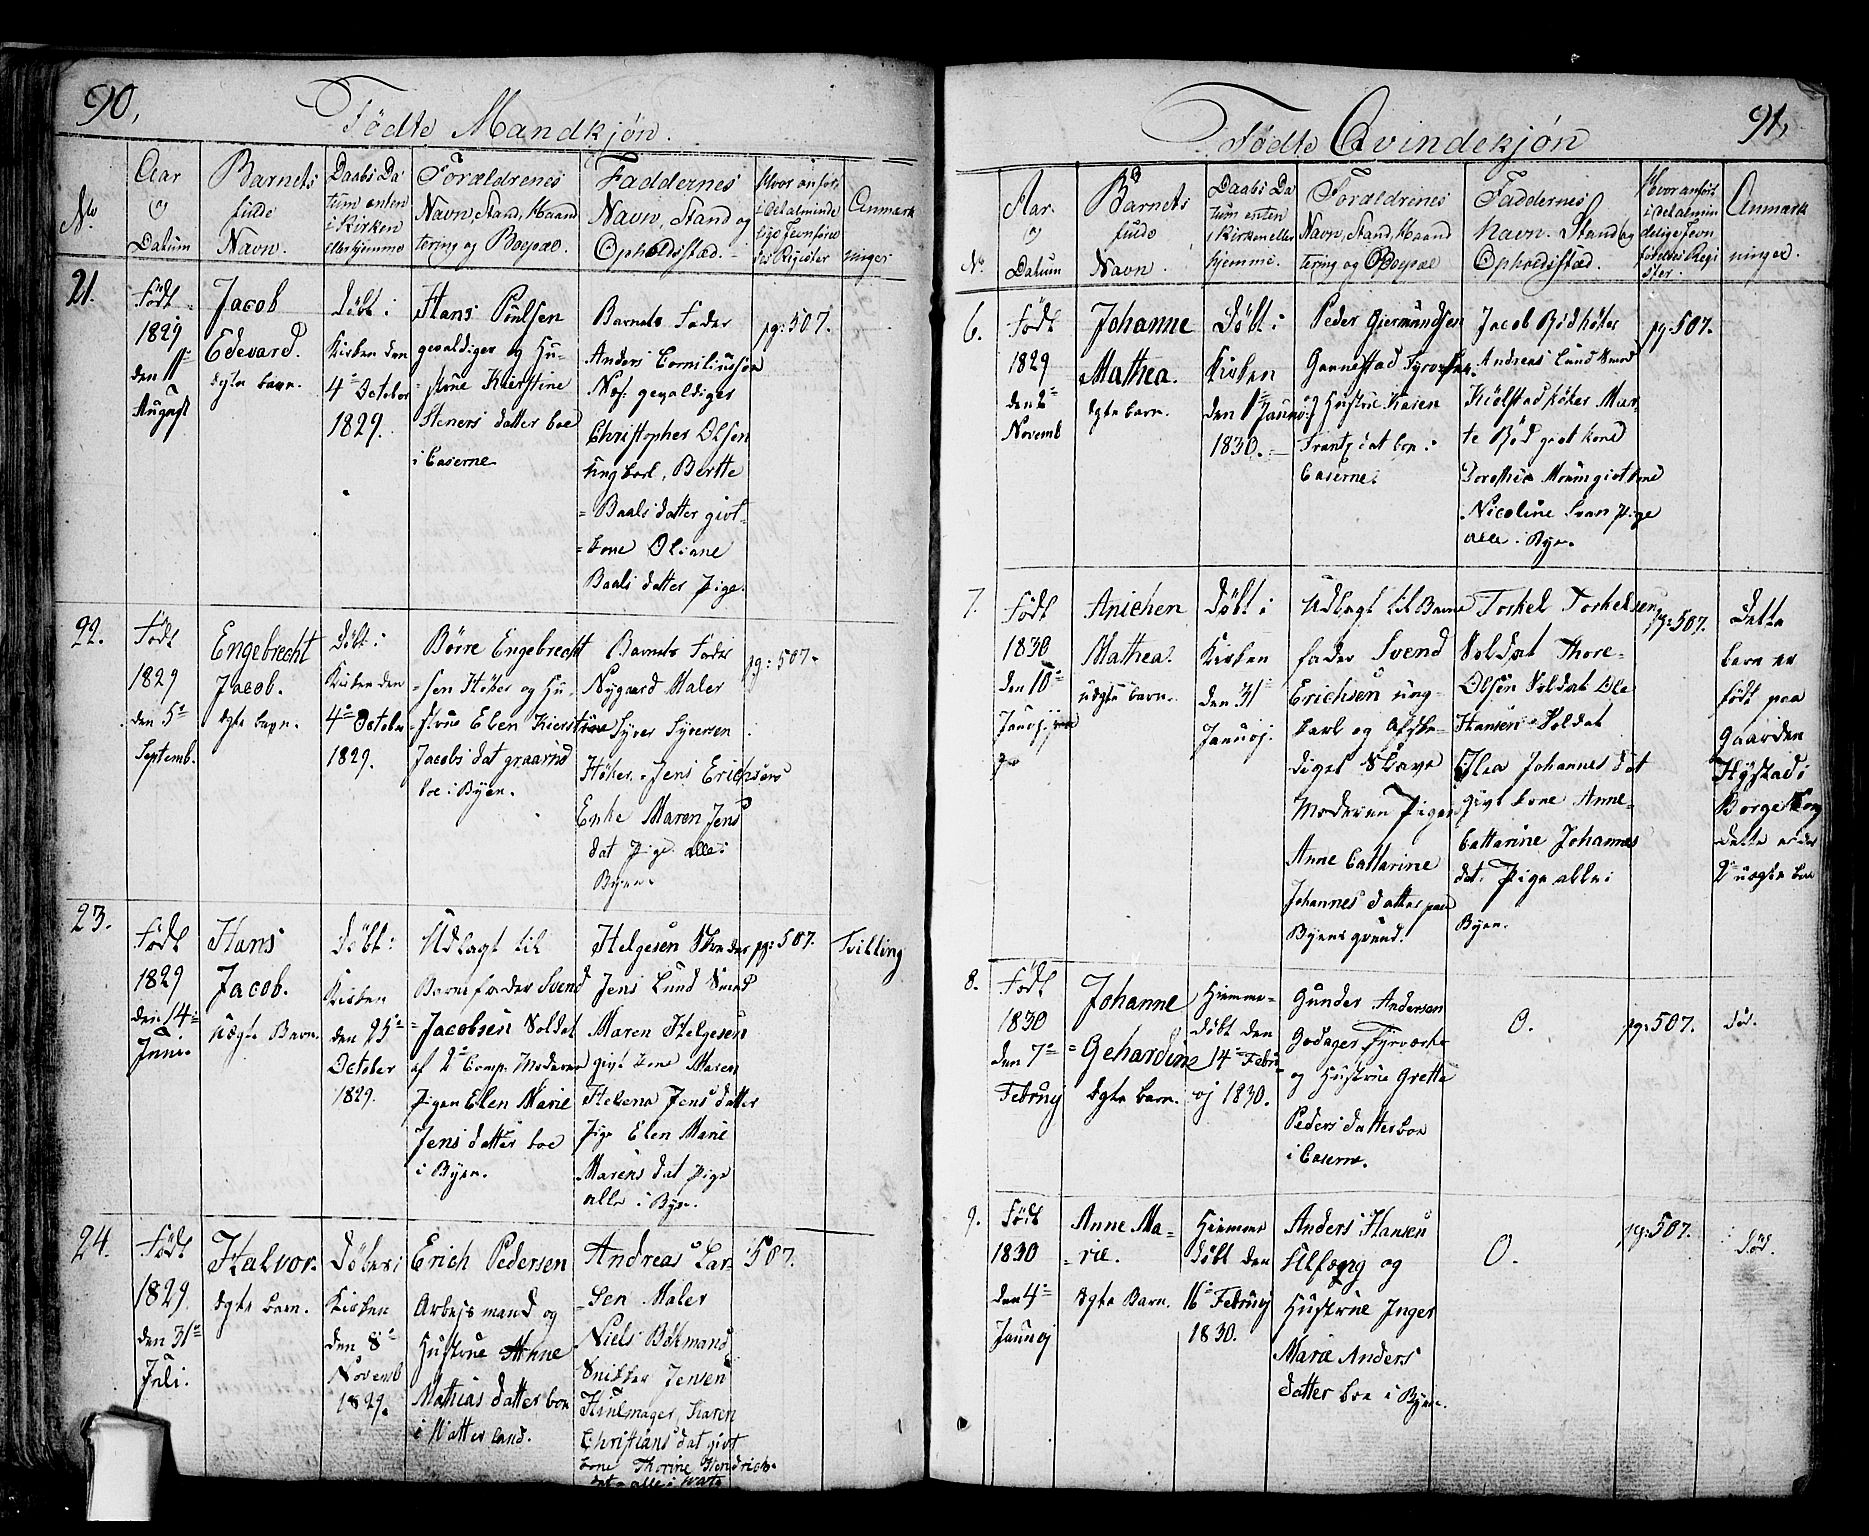 90,
Fødte Mandkjøn.
No.
Aar
og
Datum
Barnets
fulde
Navn.
Daabs Da
tum enten
i Kirken
eller hjemme
Forældrenes
Navn, Stand, Haand
tering og Boepæl.
Faddernes
Navn, Stand og
Opholdsstæd.
Hvor anført
i det alminde
lige Jevnføre
des Register
Anmærk
ninger
21.
Født
1829
den 11te
August
Jacob
Edevard.
ægte barn.
Døbt i
Kirken den
4de October
1829.
Hans Poulsen
gevaldiger og Hu-
strue Kierstine
Steners datter boe
i Caserne
Barnets Fader
Anders Corniliussøn
gevaldiger
Christopher Olsen
Ungkarl, Berthe
Baals datter givt
kone Oliane
Baals datter Pige.
pg: 507.
22.
Født
1829
den 5te
Septemb.
Engebrecht
Jacob.
ægte barn.
Døbt i
Kirken den
4de October
1829.
Børre Engebrecht
sen Høker og Hu-
strue Elen Kierstine
Jacobs dat
boe i Byen.
Barnets Fader
Nygaard Maler
Syver Syversen
Høker. Jens Erichsens
Enke Maren Jens
dat Pige alle i
Byen.
pg: 507.
23.
Født
1829
den 14de
Juni.
Hans
Jacob.
uægte Barn.
Døbt i
Kirken
den 25de
October
1829.
Udlagt til
Barnefader Svend
Jacobsen Soldat
af 2de Comp. Moderen
Pigen Elen Marie
Jens datter boe
i Byen.
Helgesen
Jens Lund Smed
Maren Helgesen
givt kone Maren
Helena Jens datter
Pige Elen Marie
Marens dat Pige
alle i Byen.
pg: 507.
Tvilling
24.
Født
1829.
den 31te
Juli.
Halvor.
ægte barn.
Døbt i
Kirken
den 8de
Novemb
1829.
Erich Pedersen
Arbejdsmand og
Hustrue Anne
Mathias datter boe
i Watterland.
Andreas Lar-
sen Maler
Niels Bökmand
Snikker Jensen
Hiulmager, Karen
Christians dat givt
kone Thorine Hendrichs
507.
91,
Fødte Qvindekjøn
No.
Aar.
og
Datum
Barnets
fulde
Navn.
Daabs Da
tum enten
i Kirken eller
hjemme.
Forældrenes
Navn, Stand, Haand
tering og Boepæl
Faddernes
Navn. Stand og
Opholdsstæd.
Hvor anført
i det almin
delige Jevn
førelses Regi
ster.
Anmærk
ninger.
6.
Født
1829
den 2de
Novemb
Johanne
Mathea.
ægte barn.
Døbt i
Kirken
den 1ste Januar
1830.
Peder Giermundsen
Gannestad
og Hustrue Karen
Frantz dat boe i
Caserne.
Jacob Rød Høker
Andreas Lund Smed
Kiølstad Høker Mar-
te Rød givt kone
Dorothea Moum givt kone
Nicoline Svan Pige
alle i Byen.
pg: 507.
7.
Født
1830
den 10de
Anichen
Mathea.
uægte barn.
Døbt i
Kirken
den 31te
Januarj.
Udlagt til Barne
fader Svend
Erichsen ung-
karl og Afske-
diget Slave
Moderen Pigen
Anne Cattarine
Johannes datter paa
Byens grund.
Torkel Torkelsen
Soldat Thore
Olsen Soldat Ole
Hansen Soldat
Olea Johannes dat
givt kone Anne
Cattarine Johannes
dat. Pige alle i
Byen.
pg: 507.
Dette
barn er
født paa
Gaarden
Hystad i
Borge Sogn
dette er det
2de uægte barn
8.
Født
1830
den 7de
Februarj
Johanne
Gehardine
ægte barn.
Hiemme-
døbt den
14de Febru-
arj 1830.
Gunder Andersen
Godager Fyrværker
og Hustrue Grette
Peders datter boe
i Caserne.
O.
pg: 507.
død.
9.
Født
1830
den 4de
Januarj
Anne Ma-
rie.
ægte Barn.
Hiemme
døbt den
16de Februarj
1830.
Anders Hansen
og
Hustrue Inger
Marie Anders
datter boe i Byen.
O.
pg: 507.
død.